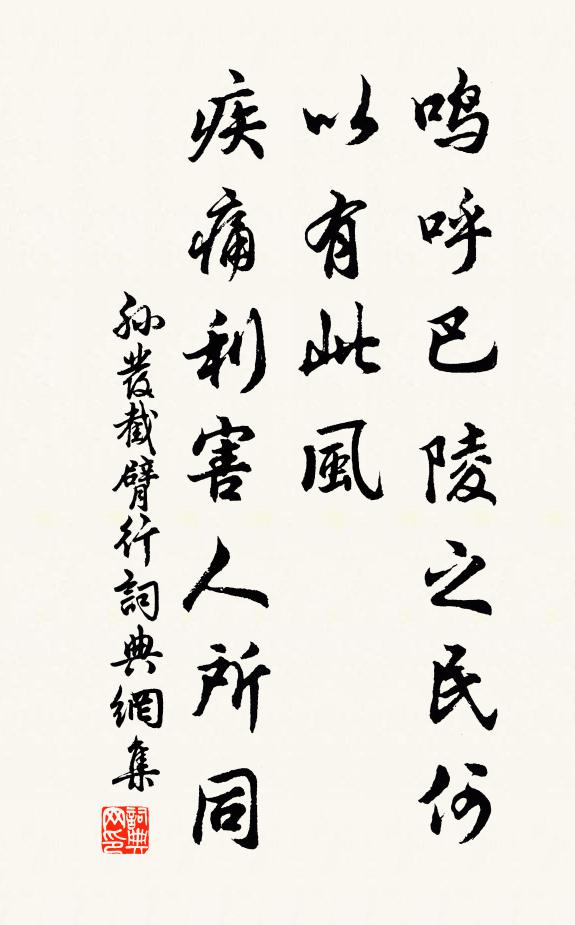 鳴呼巴陵之民何
以有此風
疾痛利害人所同
孫發截臂行詞典網集
詞典
网印